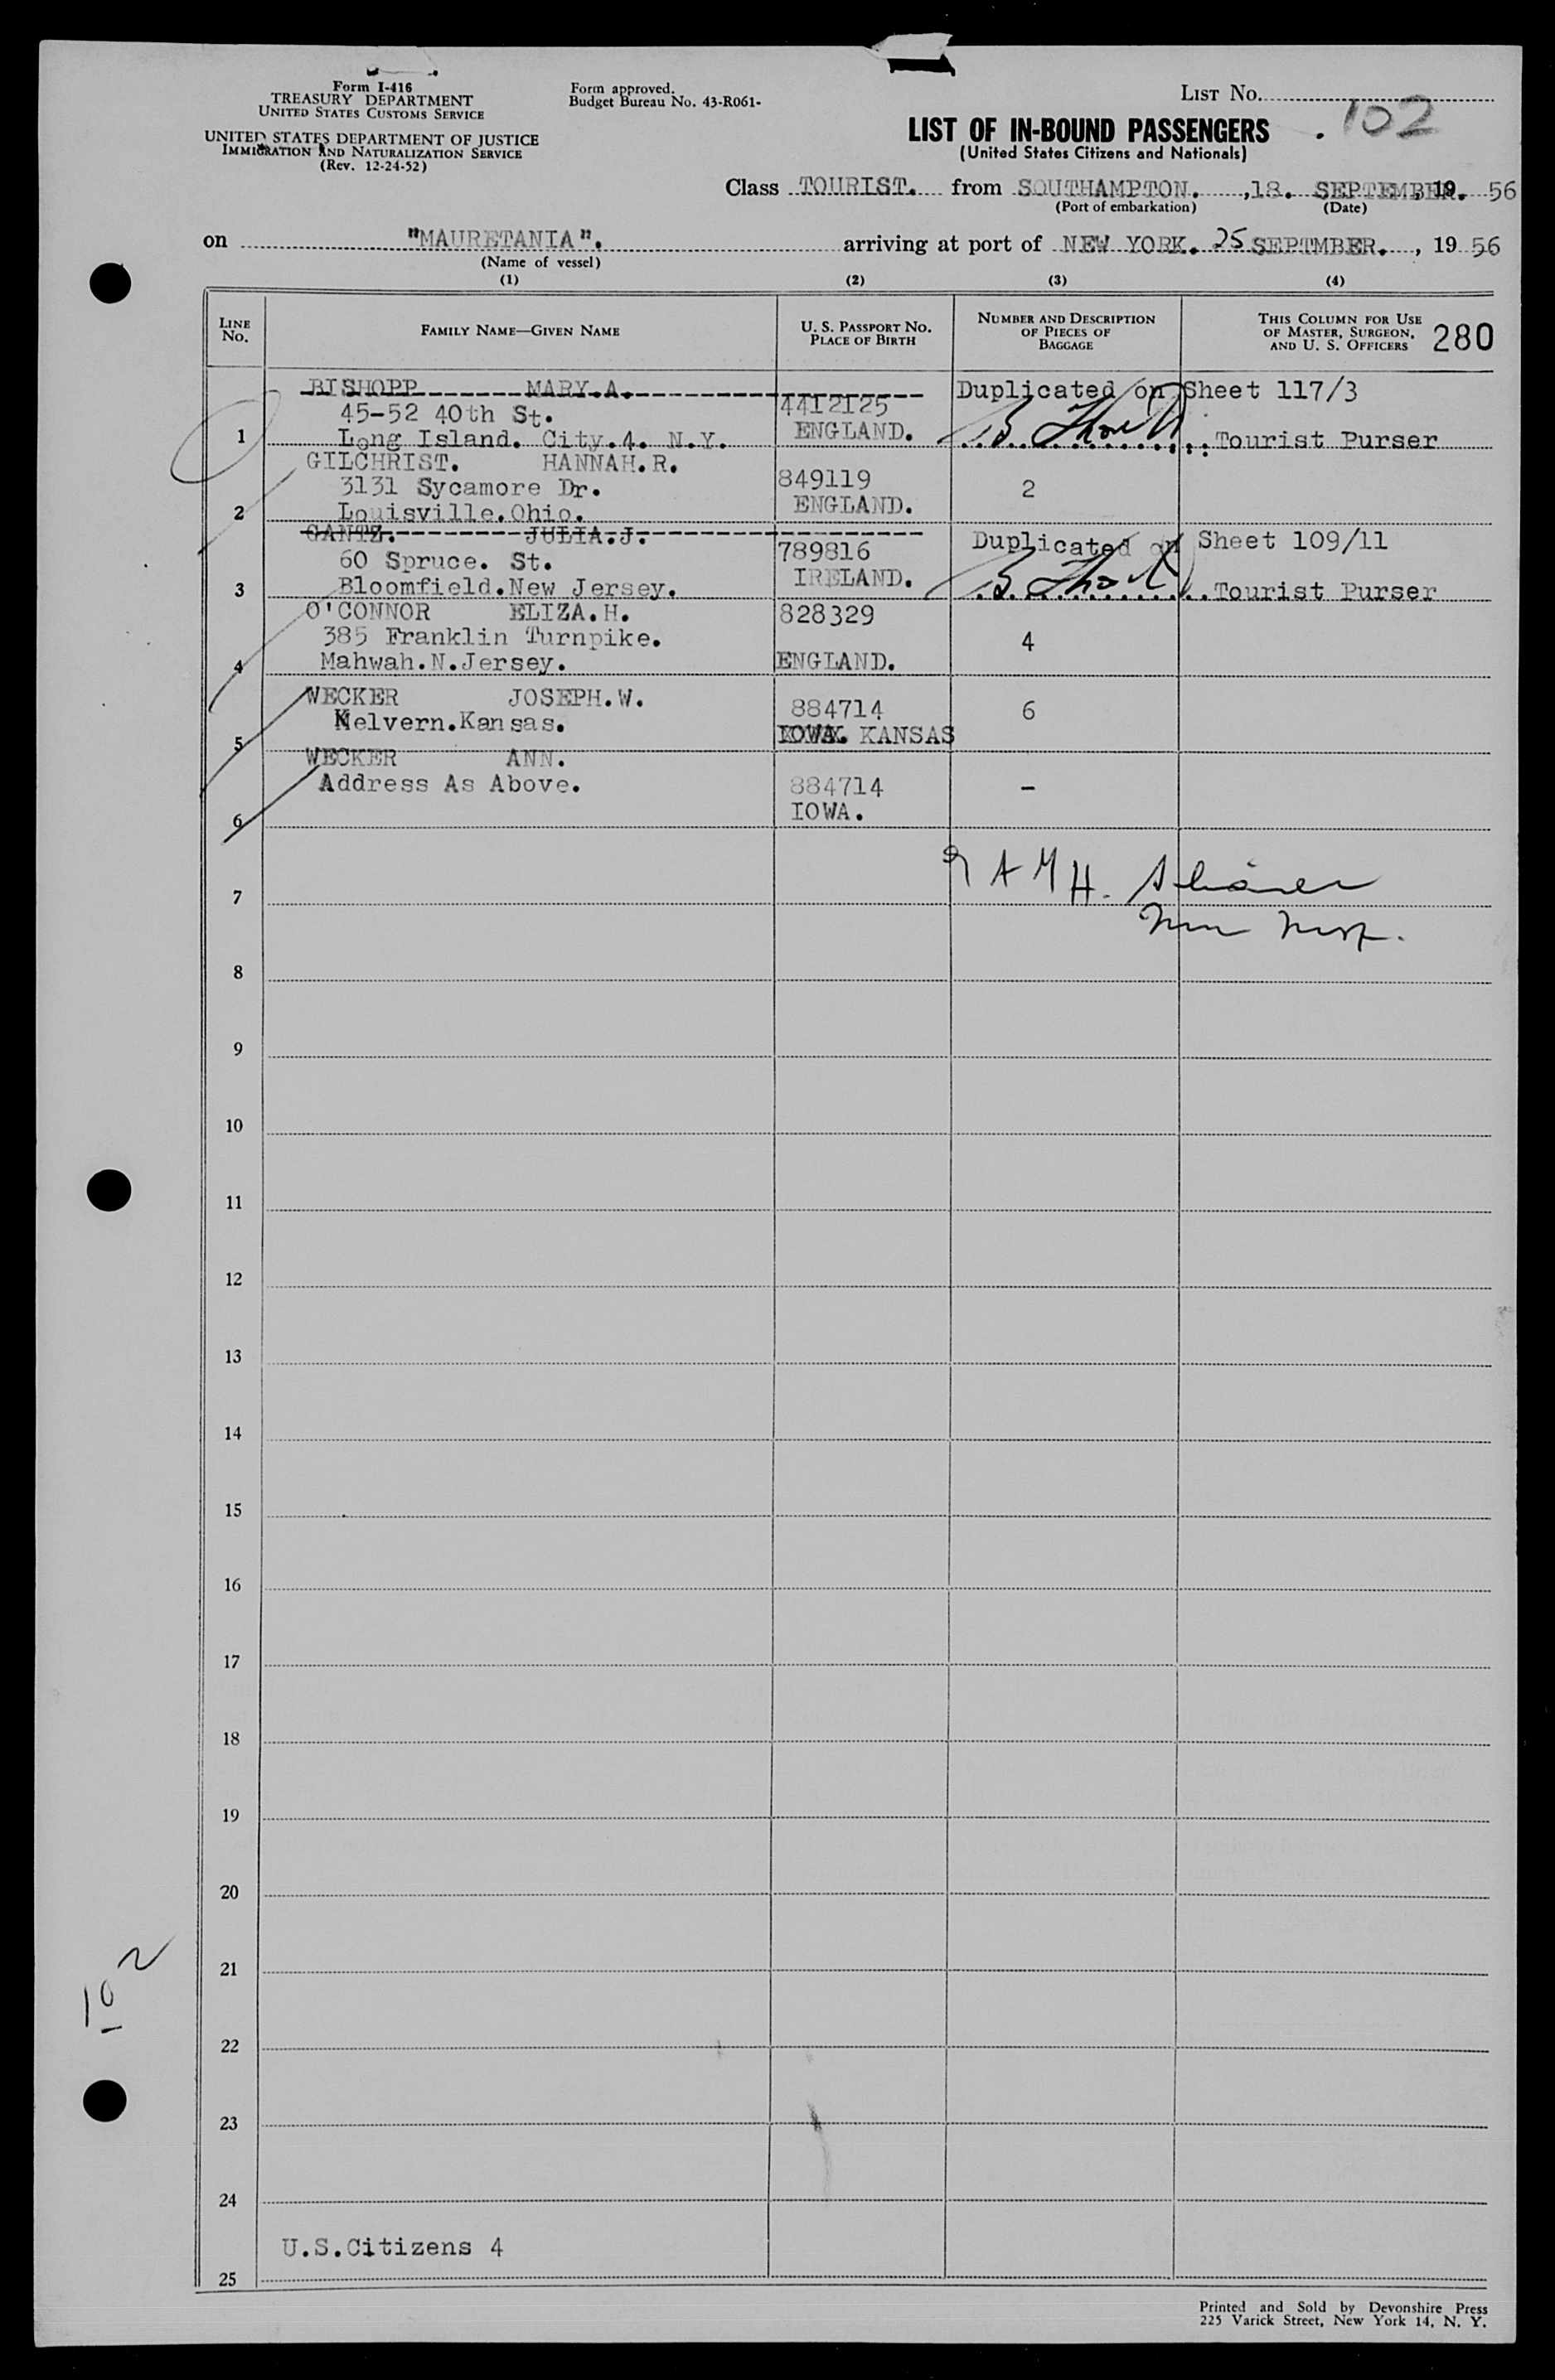 Form I-416
TREASURY DEPARTMENT
UNITED STATES CUSTOMS SERVICE
UNITED STATES DEPARTMENT OF JUSTICE
IMMIGRATION AND NATURALIZATION SERVICE
(Rev. 12-24-52)
Form approved.
Budget Bureau No. 43-R061-
LIST NO.
102
LIST OF IN-BOUND PASSENGERS
(United States Citizens and Nationals)
Class TOURIST. from SOUTHAMPTON. , 18. SEPTEMBER. 19 56
(Port of embarkation) (Date)
on "MAURETANIA". arriving at port of NEW YORK. 25 SEPTMBER. , 19 56
(Name of vessel)
(1) (2) (3) (4)
LINE NO.
FAMILY NAME—GIVEN NAME
U. S. PASSPORT NO.
PLACE OF BIRTH
NUMBER AND DESCRIPTION
OF PIECES OF
BAGGAGE
THIS COLUMN FOR USE
OF MASTER, SURGEON,
AND U. S. OFFICERS
280
BISHOPP MARY.A. Duplicated on Sheet 117/3
45-52 40th St. 4412125
1 Long Island. City.4. N.Y. ENGLAND. Tourist Purser
GILCHRIST. HANNAH.R.
3131 Sycamore Dr. 849119 2
2 Louisville.Ohio. ENGLAND.
GANTZ. JULIA.J. Duplicated on Sheet 109/11
60 Spruce. St. 789816
3 Bloomfield.New Jersey. IRELAND. Tourist Purser
O'CONNOR ELIZA.H. 828329
385 Franklin Turnpike. 4
4 Mahwah.N.Jersey. ENGLAND.
WECKER JOSEPH.W. 884714 6
Kelvern.Kansas.
5 IOWA. KANSAS
WECKER ANN.
Address As Above. 884714 -
6 IOWA.
7
8
9
10
11
12
13
14
15
16
17
18
19
20
21
102
22
23
24
U.S.Citizens 4
25
Printed and Sold by Devonshire Press
225 Varick Street, New York 14, N. Y.